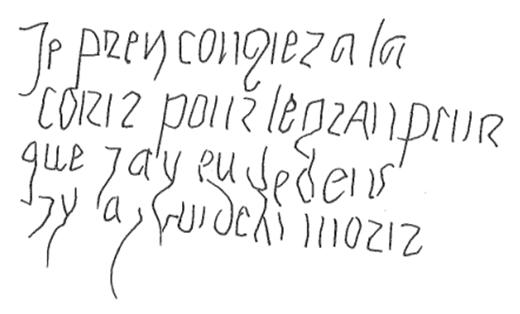 Je pren congiez a la
corir pour le gran peur
que jay eu dedens
jy ay morir